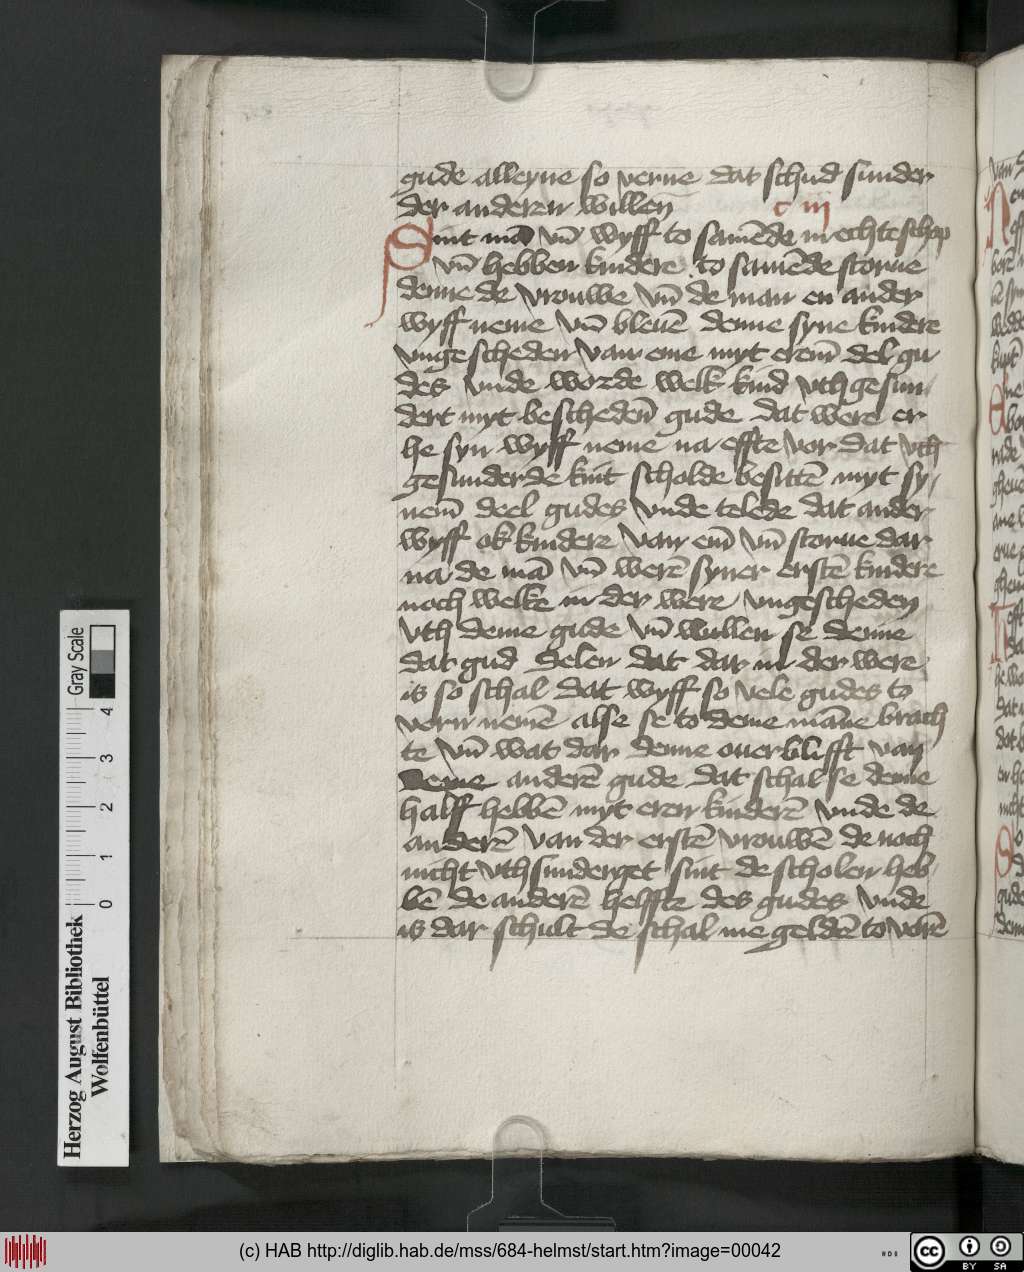 gude alleyne so verne dat schud sunder
der anderen willen c iij
Sint mā vn̄ wyff to samēde in echteschop
vn̄ hebben kindere to samēde storue
denne de vrouwe vn̄ de man en ander
wyff neme vn̄ bleuē denne syne kindere
vnge scheden van eme myt erem̄ del gu
des vnde worde welk kind vthgesun
dert myt bescheden̄ gude dat were er
he syn wyff neme na effte vor dat vth
gesunderde kint scholde besittē myt sy
nem̄ deel gudes vnde telede dat ander
wyff ok kindere van em̄ vn̄ storue dar
na de mā vn̄ werē syner erstē kindere
noch welke in der were vngescheden
vth deme gude vn̄ wullen se denne
dat gud delen dat dar in der were
is so schal dat wyff so vele gudes to
vorn nemē alse se to deme māne brach
te vn̄ wat dar denne ouerblifft van
deme anderē gude dat schal se denne
halff hebbē myt eren kinderē vnde de
anderē van der erstē vrouwē de noch
nicht vthsunderget sint de scholen heb
bē de anderē helffte des gudes vnde
is dar schult de schal me geldē to vorē
Herzog August Bibliothek
Wolfenbüttel
Gray Scale
0 1 2 3 4
(c) HAB http://diglib.hab.de/mss/684-helmst/start.htm?image=00042
cc BY SA